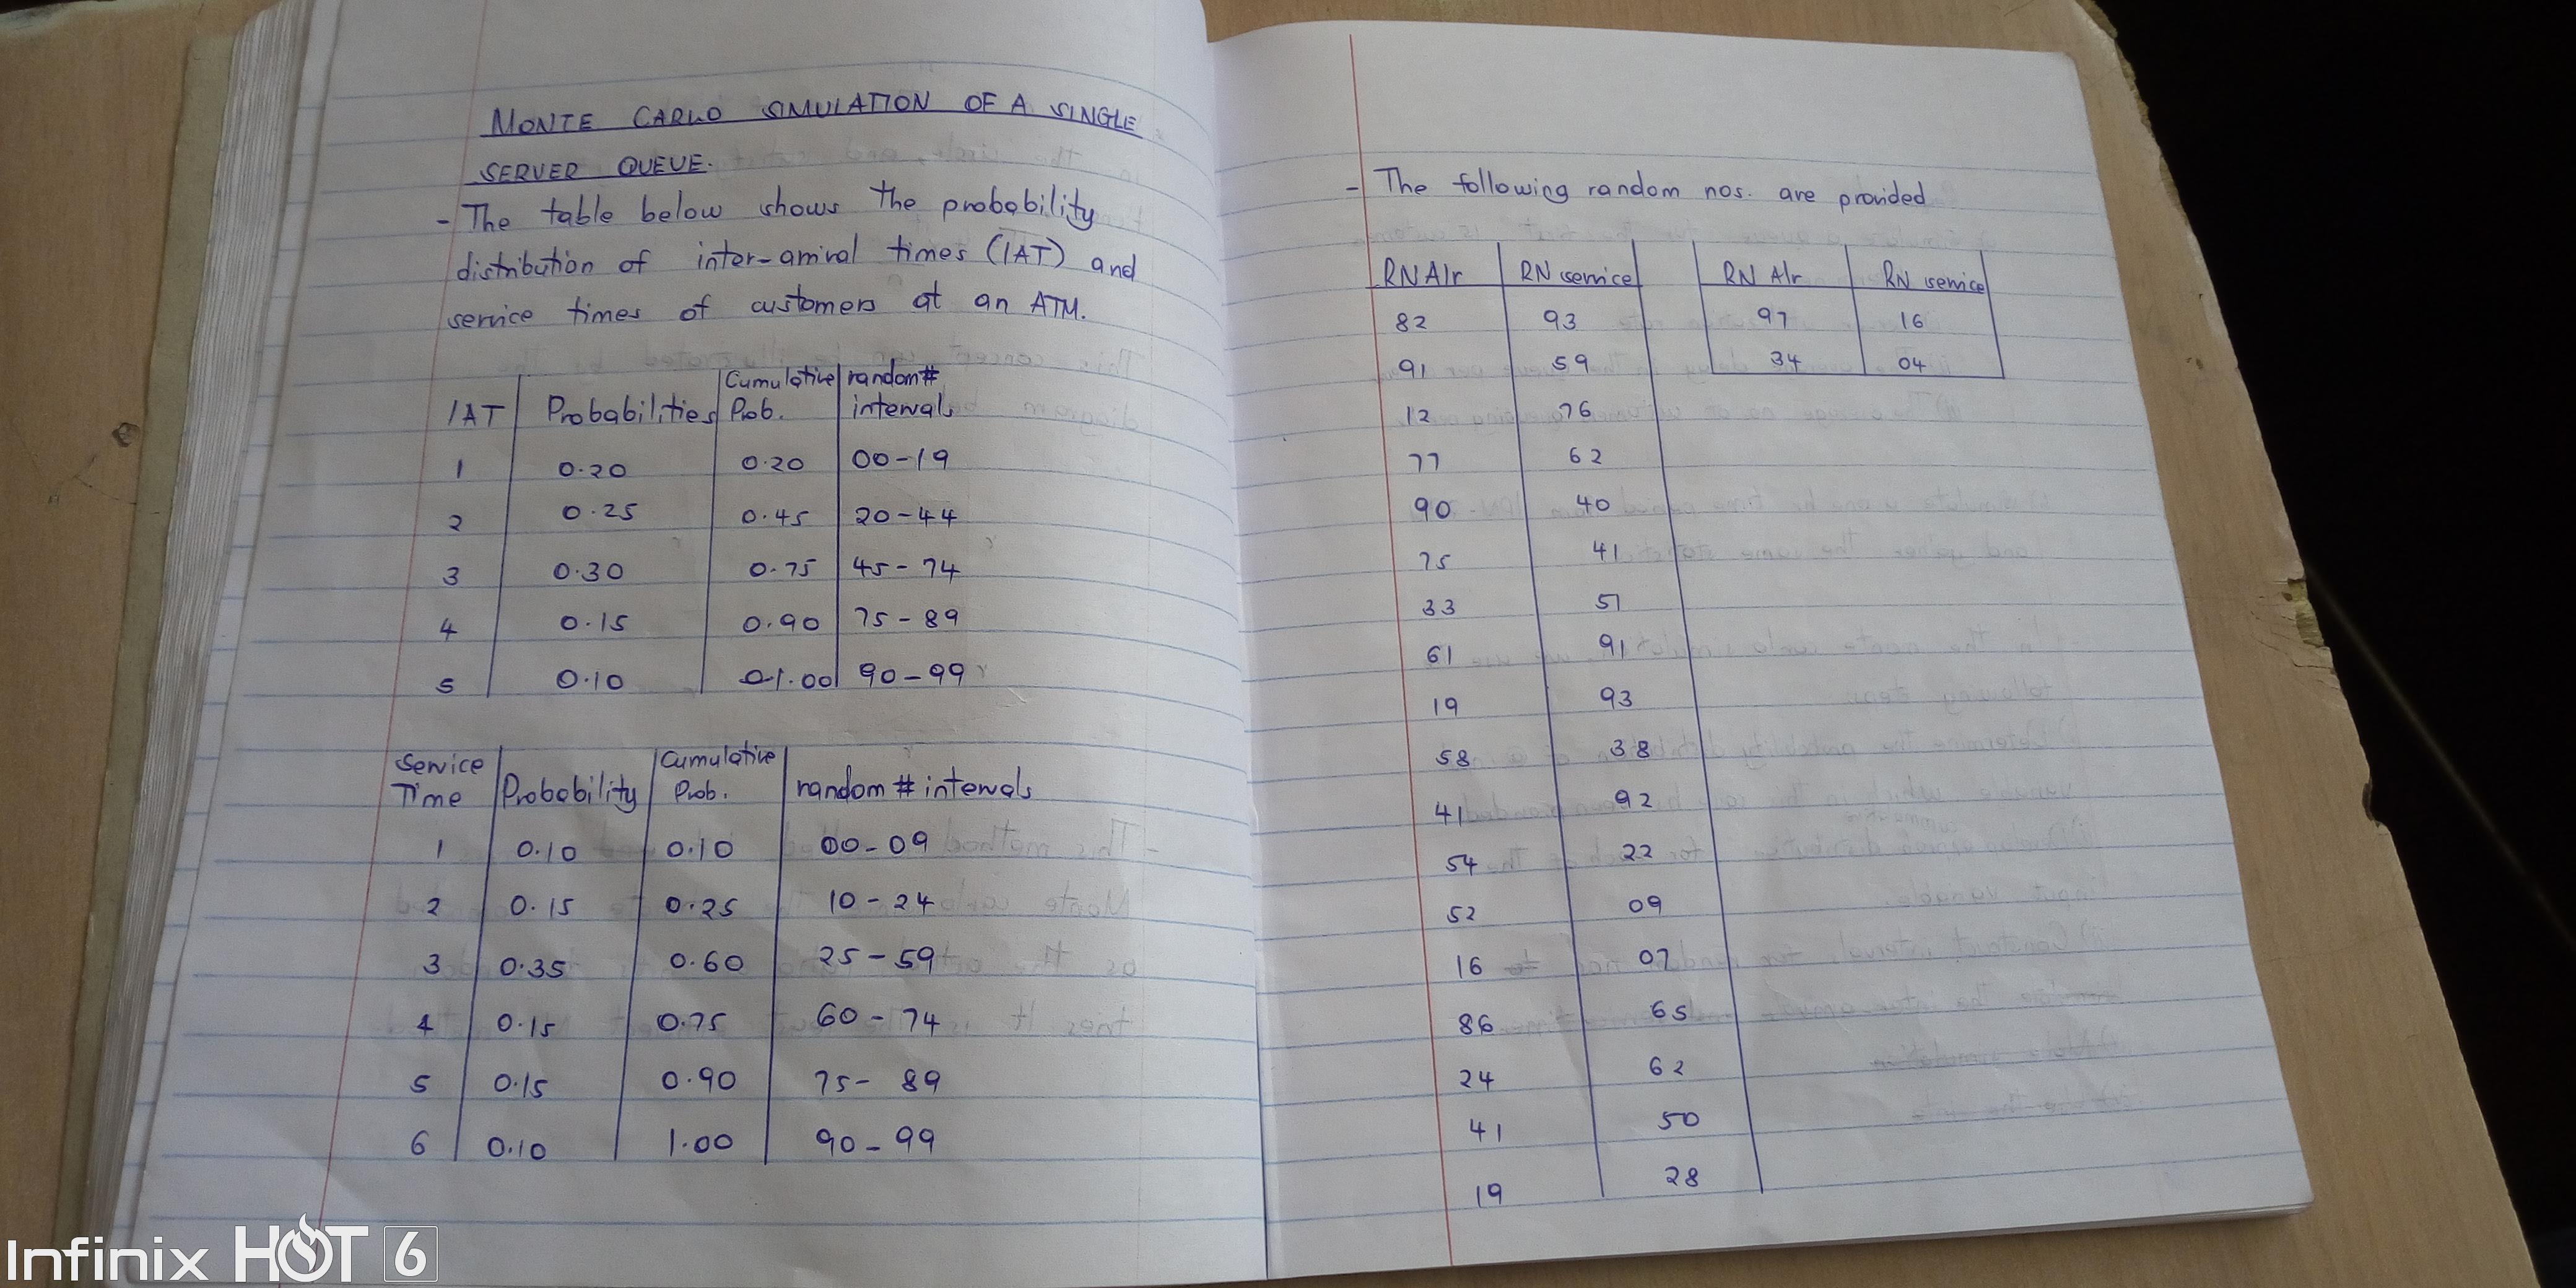 MONTE CARLO SIMULATION OF A SINGLE
SERVER QUEUE.
- The table below shows the probability
distribution of inter-arrival times (IAT) and
service times of customers at an ATM.
IAT Probabilities Cumulative Prob. random # intervals
1 0.20 0.20 00-19
2 0.25 0.45 20-44
3 0.30 0.75 45-74
4 0.15 0.90 75-89
5 0.10 1.00 90-99
Service Time Probability Cumulative Prob. random # intervals
1 0.10 0.10 00-09
2 0.15 0.25 10-24
3 0.35 0.60 25-59
4 0.15 0.75 60-74
5 0.15 0.90 75-89
6 0.10 1.00 90-99
- The following random nos. are provided
RN Alr RN service RN Alr RN service
82 93 97 16
91 59 34 04
12 76
77 62
90 40
75 41
33 51
61 91
19 93
58 38
41 92
54 22
52 09
16 07
86 65
24 62
41 50
19 28
Infinix HOT 6